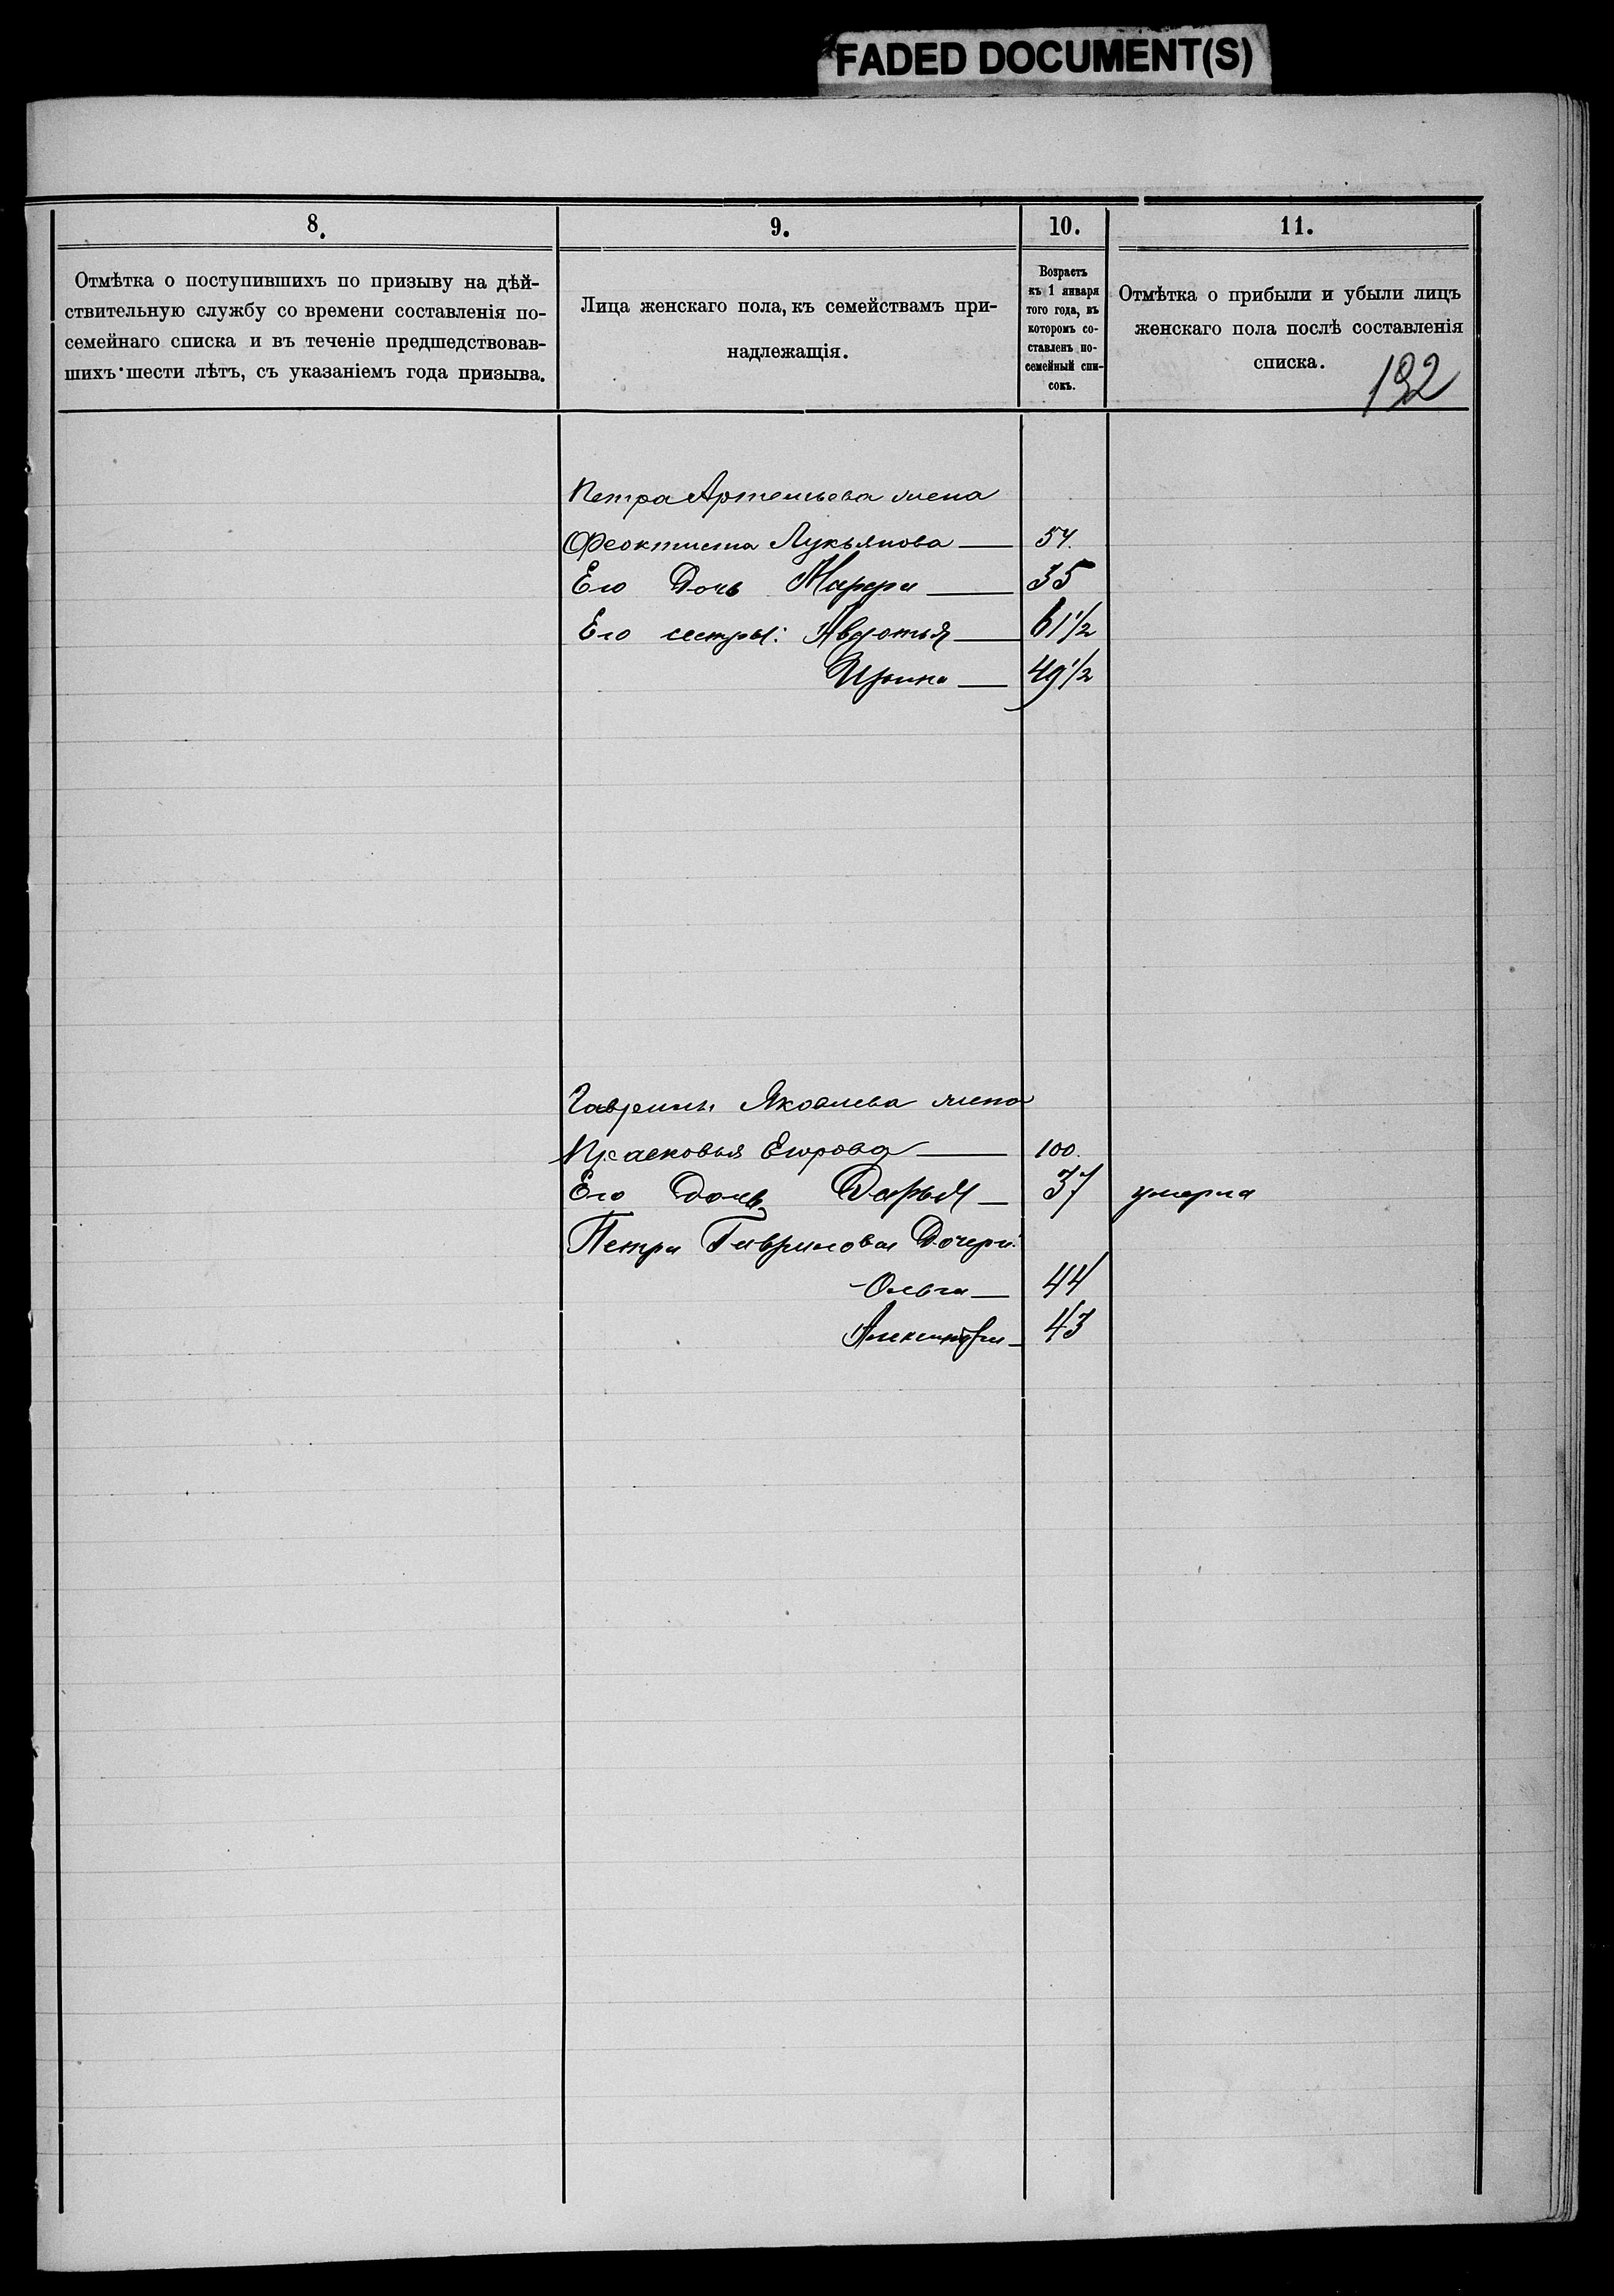 FADED DOCUMENT(S)
8.
9.
10.
11.
Отмѣтка о поступившихъ по призыву на дѣй-
ствительную службу со времени составленія по-
семейнаго списка и въ теченіе предшедствовав-
шихъ шести лѣтъ, съ указаніемъ года призыва.
Лица женскаго пола, къ семействамъ при-
надлежащія.
Возрастъ
къ 1 января
того года, въ
которомъ со-
ставленъ по-
семейный спи-
сокъ.
Отмѣтка о прибыли и убыли лицъ
женскаго пола послѣ составленія
списка.
192
Петра Артемьева жена
Феоктиста Лукьянова — 54.
Его Дочь Марфа — 35
Его сестры: Авдотья — 61 1/2
Ирина — 49 1/2
Гаврилы Яковлева жена
Прасковья Егорова — 100.
Его Дочь Дарья — 37 умерла
Петра Гаврилова Дочери:
Ольга — 44
Александра — 43